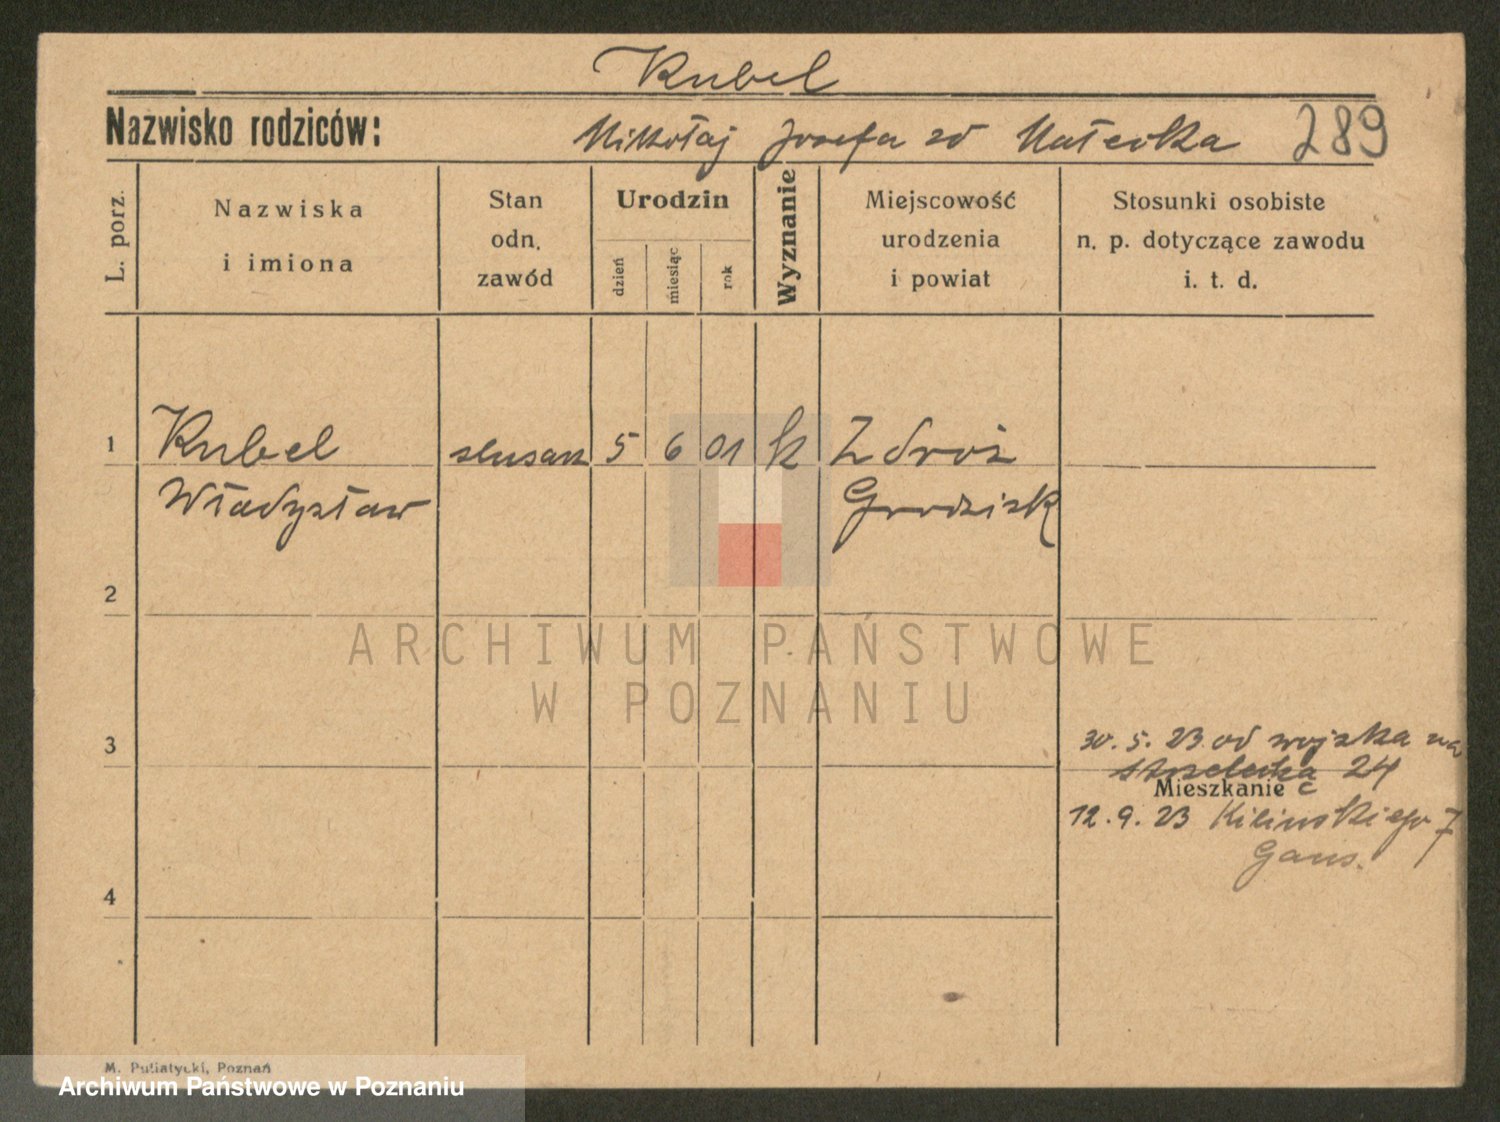 Kubel
Nazwisko rodziców: Mikołaj Józefa zd Małecka 289
L. porz.
Nazwiska
i imiona
Stan
odn.
zawód
Urodzin
dzień
miesiąc
rok
Wyznanie
Miejscowość
urodzenia
i powiat
Stosunki osobiste
n. p. dotyczące zawodu
i. t. d.
1 Kubel ślusarz 5 6 01 k Zdrój
Władysław Grodzisk
2
ARCHIWUM PAŃSTWOWE
W POZNANIU
3
30. 5. 23 od wojska na
Strzelecka 24
Mieszkanie
12. 9. 23 Kilińskiego 7
4
M. Putiatycki, Poznań
Archiwum Państwowe w Poznaniu